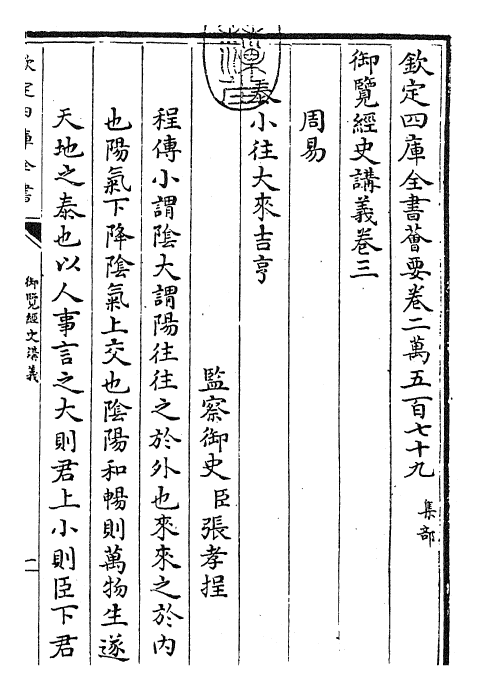 欽定四庫全書薈要卷二萬五百七十九 集部
御覽經史講義卷三
周易
泰小往大來吉亨
監察御史臣張孝捏
程傳小謂陰大謂陽往往之於外也來來之於内
也陽氣下降陰氣上交也陰陽和暢則萬物生遂
天地之泰也以人事言之大則君上小則臣下君
欽定四庫全書
御覽經史講義
一